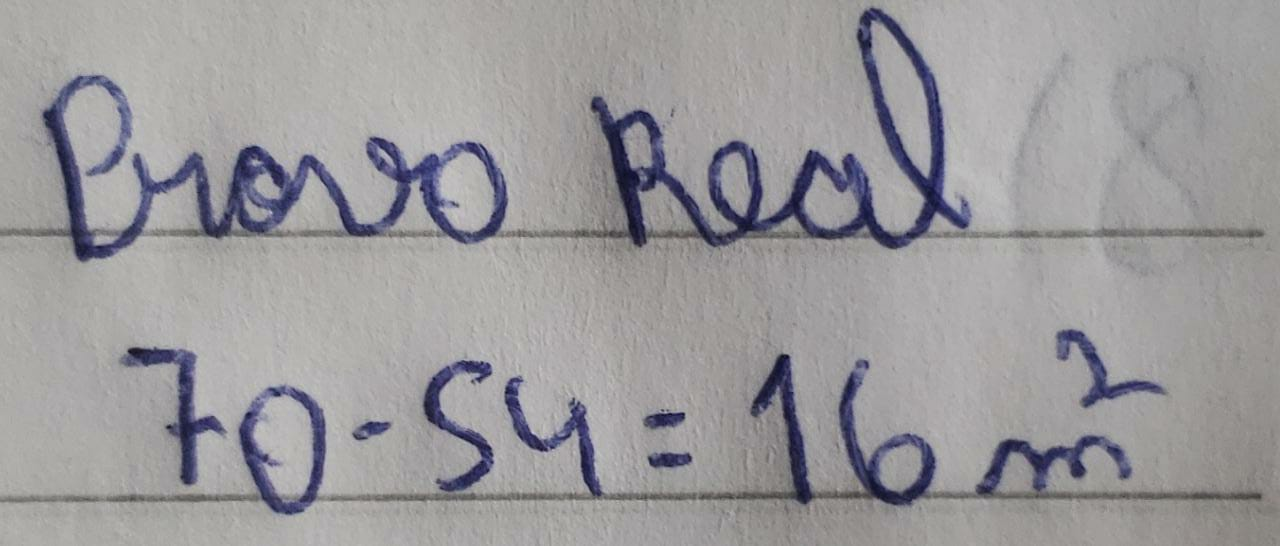 Prova Real
70-54=16 m²